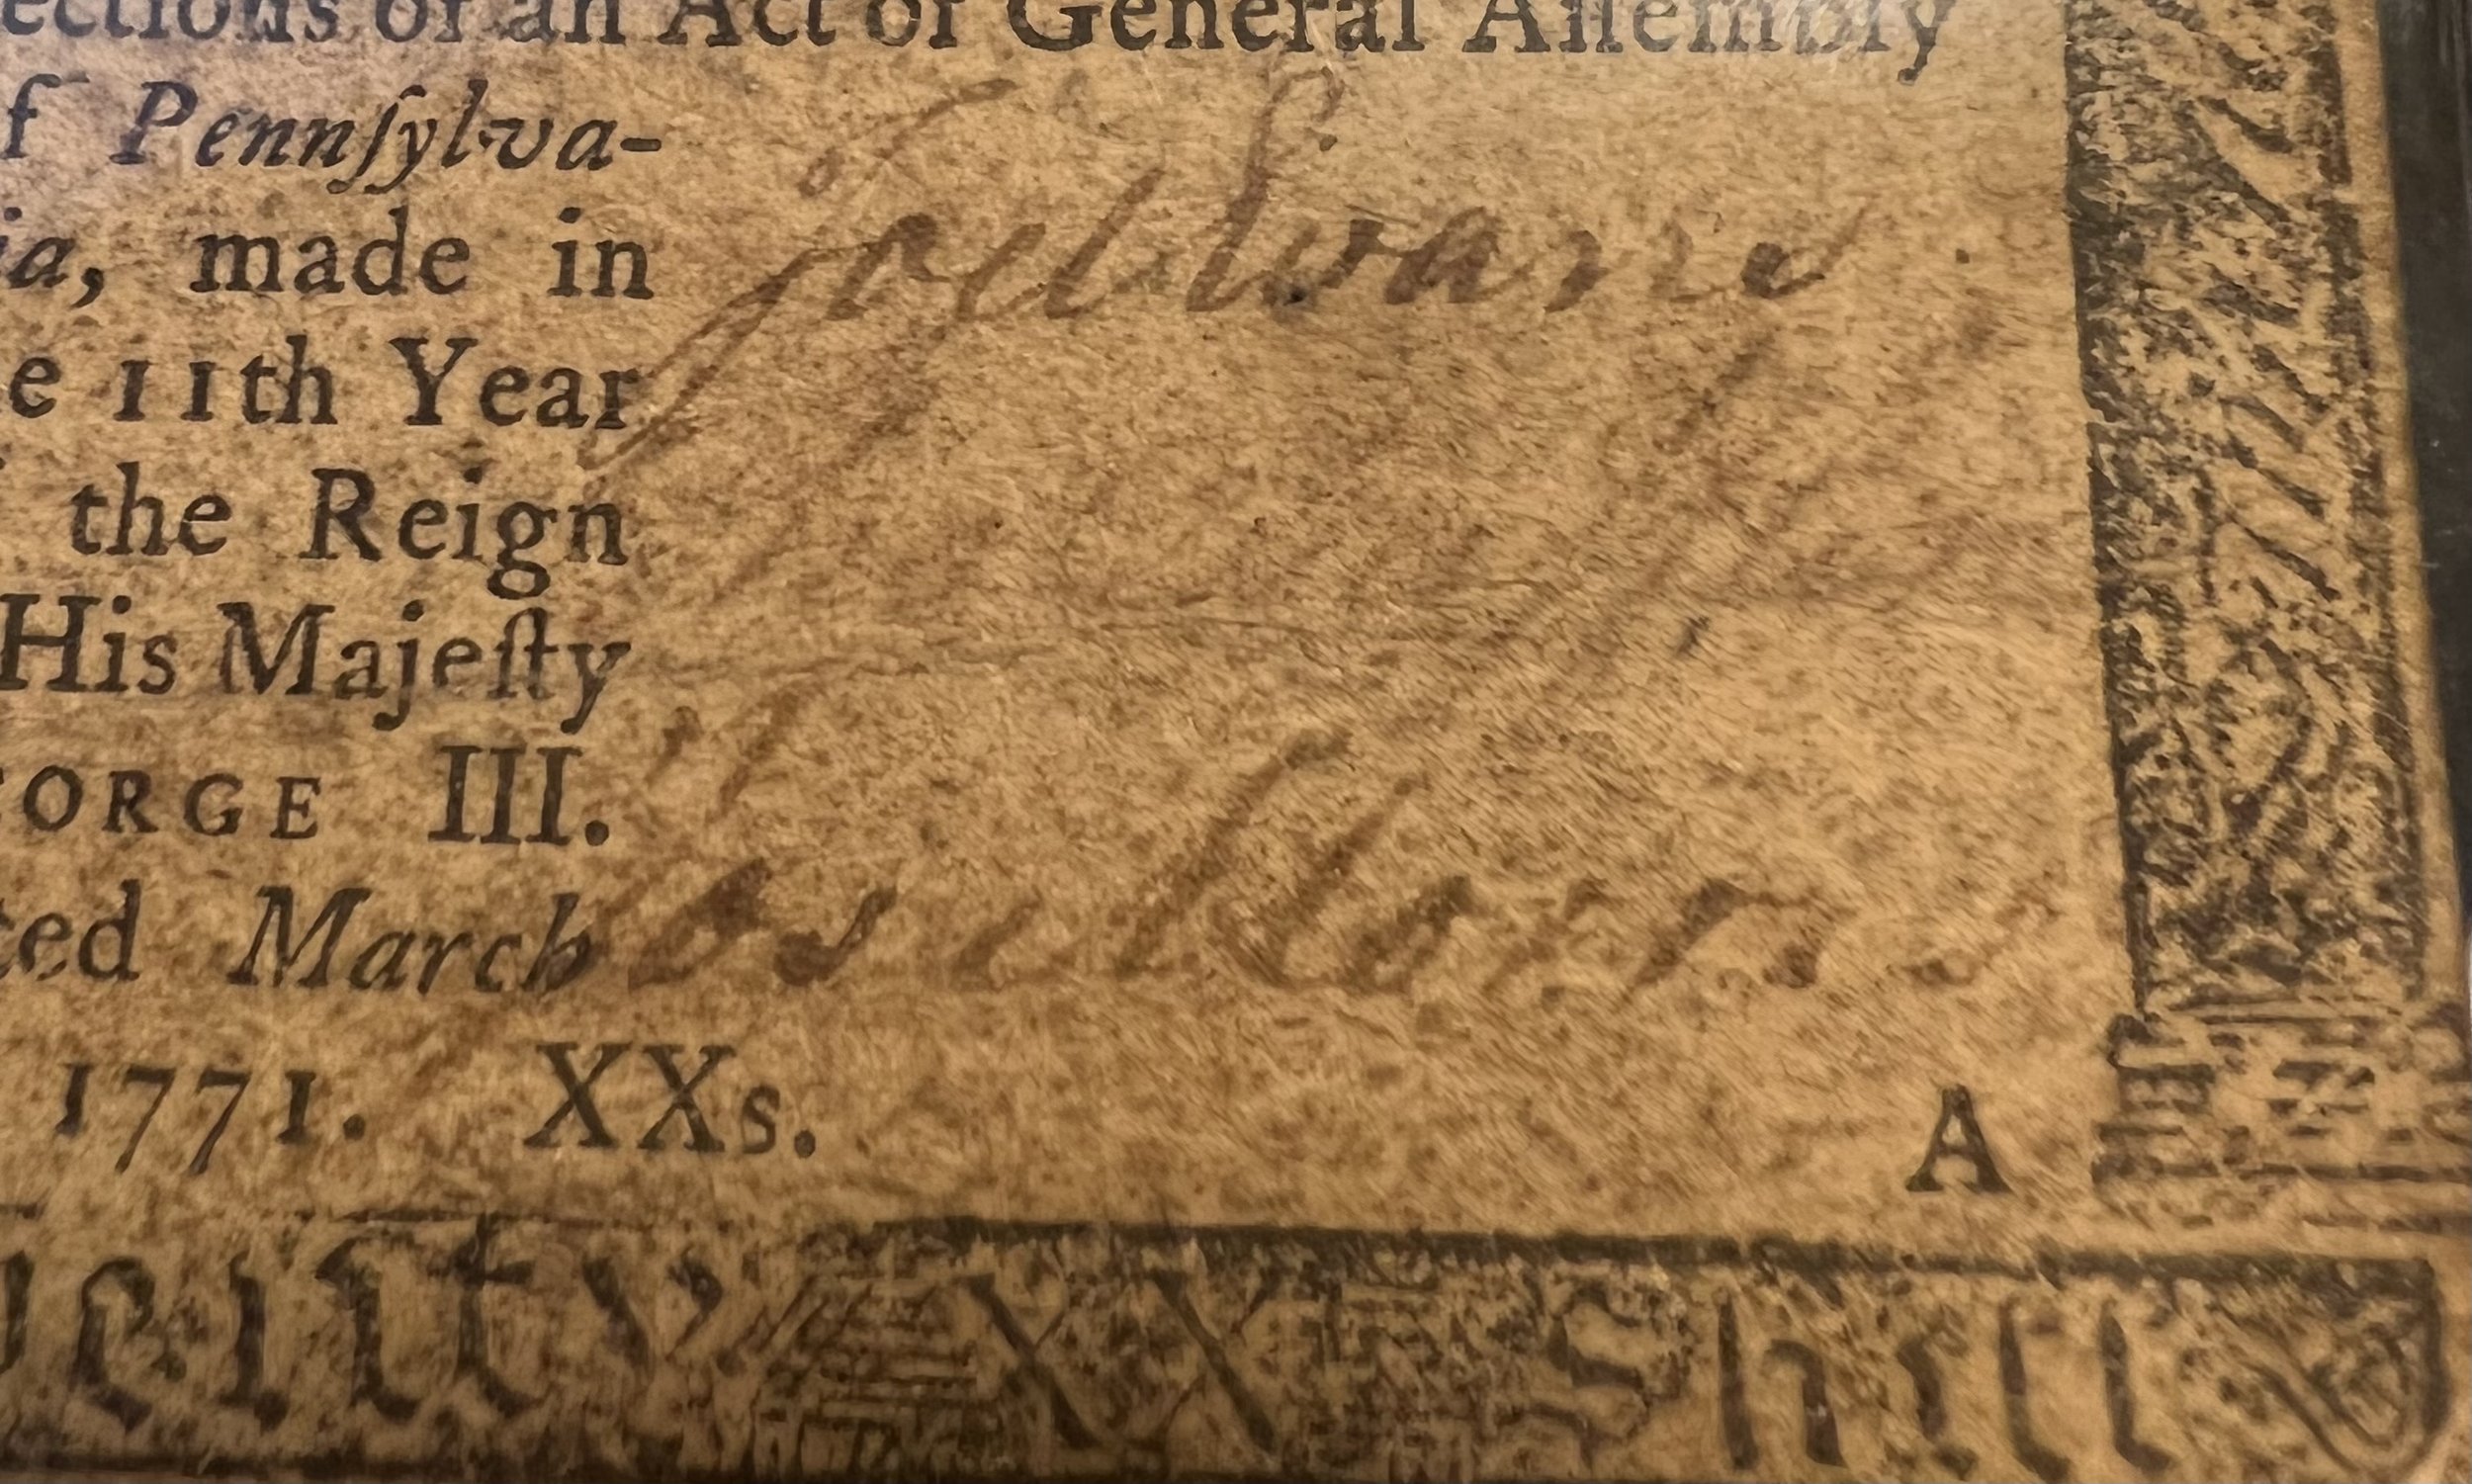 ections of an Act of General Aſſembly
f Pennſylva-
ia, made in
e 11th Year
the Reign
His Majeſty
ORGE III.
ted March
1771. XXs.
Joel Evans
A
XX Shill